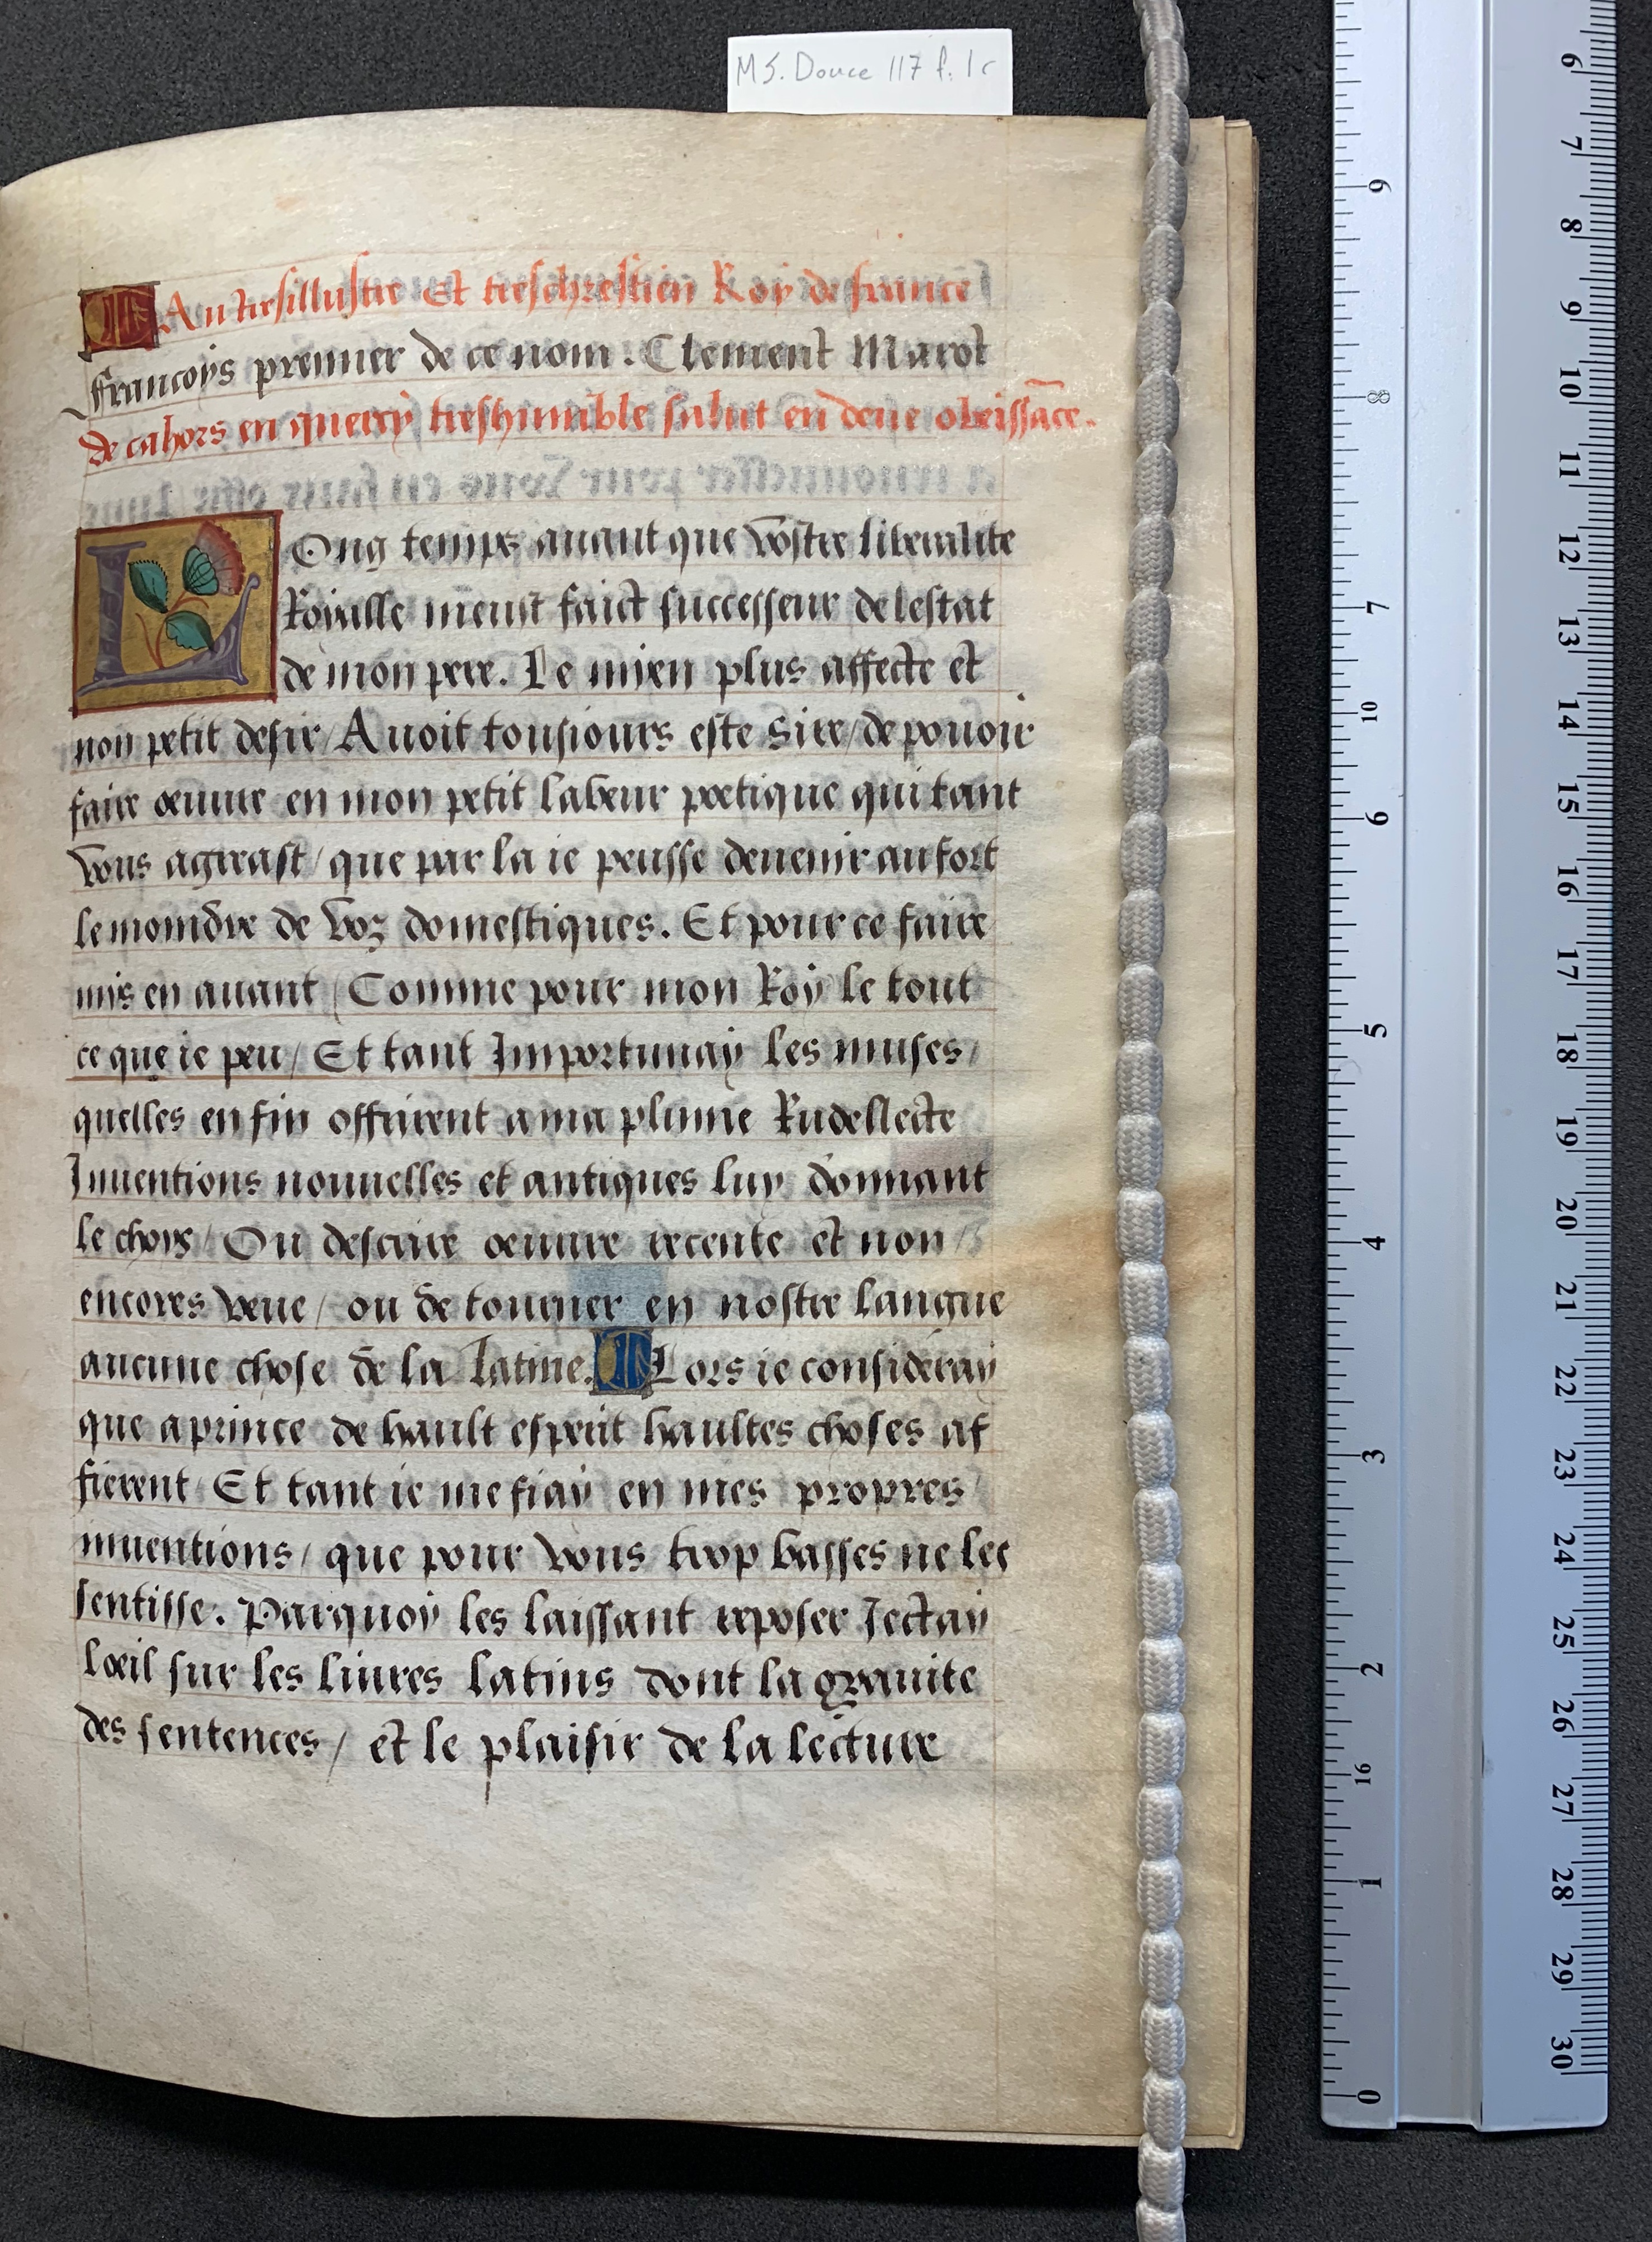 MS. Douce 117 f. 1r
Au tresillustre Et treschrestien Roy de france
francoys premier de ce nom. Clement Marot
de cahors en quercy treshumble salut en deue obeissāce.
LOng temps auant que vostre liberalite
Royalle meust faict successeur de lestat
de mon pere. Le mien plus affecte et
non petit desir/ Auoit tousiours este Sire/ de pouoir
faire oeuure en mon petit labeur poetique qui tant
vous agreast/ que par la ie peusse deuenir au fort
le moindre de voz domestiques. Et pour ce faire
mis en auant/ Comme pour mon Roy le tout
ce que ie peu/ Et tant Importunay les muses/
quelles en fin offrirent a ma plume Rudellecte
Inuentions nouuelles et antiques luy donnant
le choix/ Ou descrire oeuure recente et non
encores veue/ ou de tourner en nostre langue
aucune chose de la latine. Lors ie consideray
que a prince de hault esperit haultes choses af
fierent Et tant ie me fiay en mes propres
inuentions/ que pour vous trop basses ne les
sentisse. Parquoy les laissant reposer Iectay
loeil sur les liures latins dont la grauite
des sentences/ et le plaisir de la lecture
6
7
8
9
10
11
12
13
14
15
16
17
18
19
20
21
22
23
24
25
26
27
28
29
30
9
8
7
10
6
5
4
3
2
16
1
0